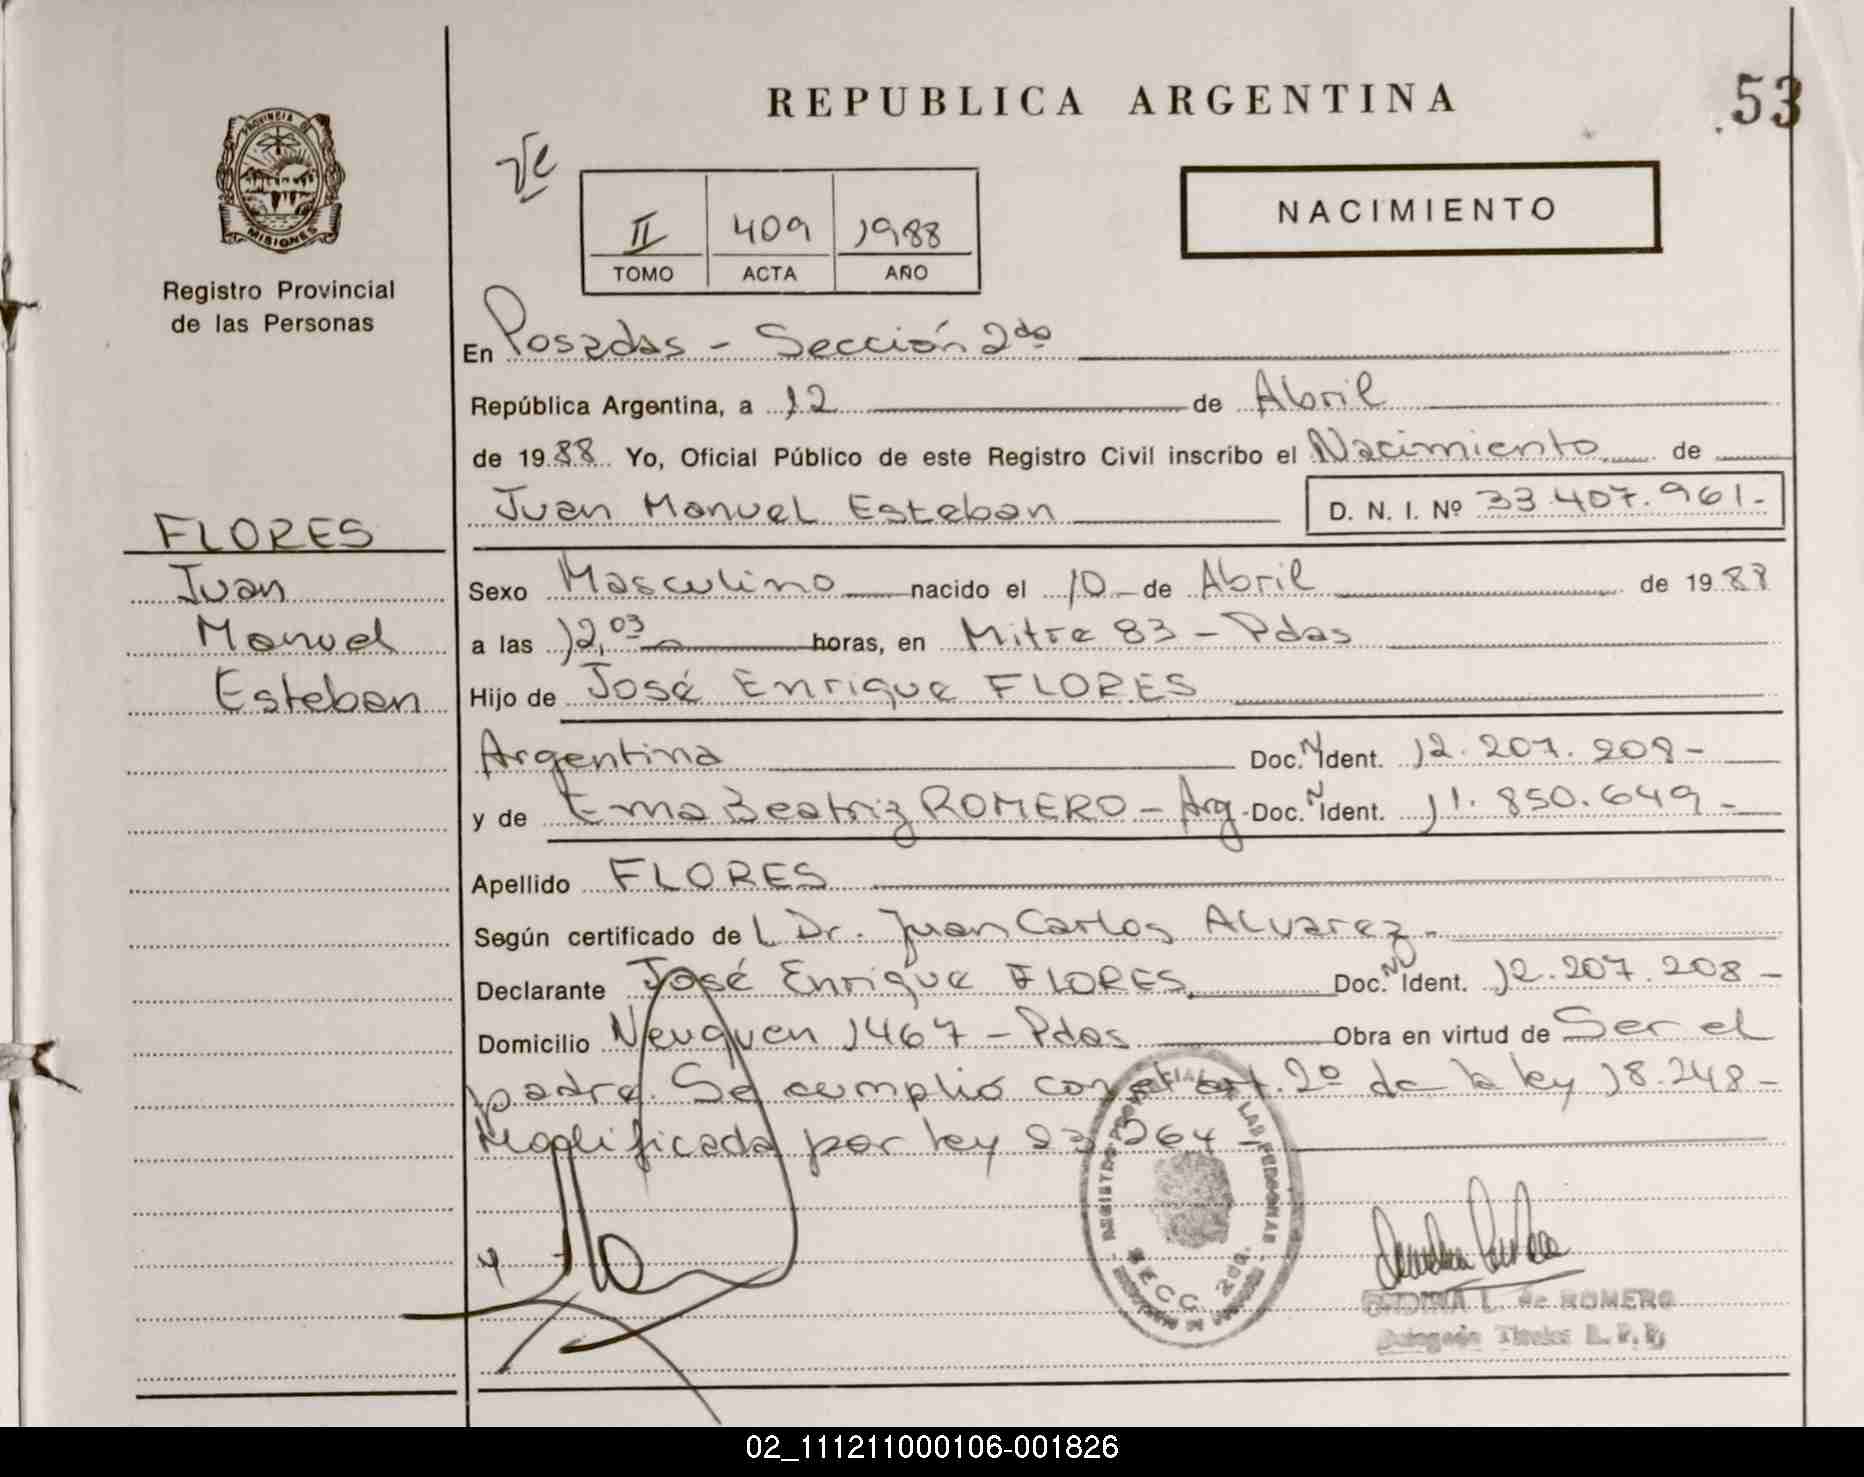 REPUBLICA ARGENTINA
53
PROVINCIA DE
MISIONES
Registro Provincial
de las Personas
II 409 1988
TOMO ACTA AÑO
NACIMIENTO
En Posadas - Sección 2da
República Argentina, a 12 de Abril
de 1988 Yo, Oficial Público de este Registro Civil inscribo el Nacimiento de
Juan Manuel Esteban D. N. I. Nº 33.407.961-
FLORES
Juan
Manuel
Esteban
Sexo Masculino nacido el 10 de Abril de 1988
a las 12,03 horas, en Mitre 83 - Pdas
Hijo de José Enrique FLORES
Argentina Doc. N Ident. 12.207.208-
y de Ema Beatriz ROMERO - Arg. Doc. N Ident. 11.850.649-
Apellido FLORES
Según certificado del Dr. Juan Carlos ALVAREZ.
Declarante José Enrique FLORES Doc. N Ident. 12.207.208-
Domicilio Neuquen 1467 - Pdas Obra en virtud de Ser el
padre. Se cumplió con el art. 2º de la ley 18.248-
Modificada por ley 23.264-
REGISTRO PROVINCIAL DE LAS PERSONAS
SECC. 2da.
L. de ROMERO
Delegada Titular R. P. P.
02_111211000106-001826